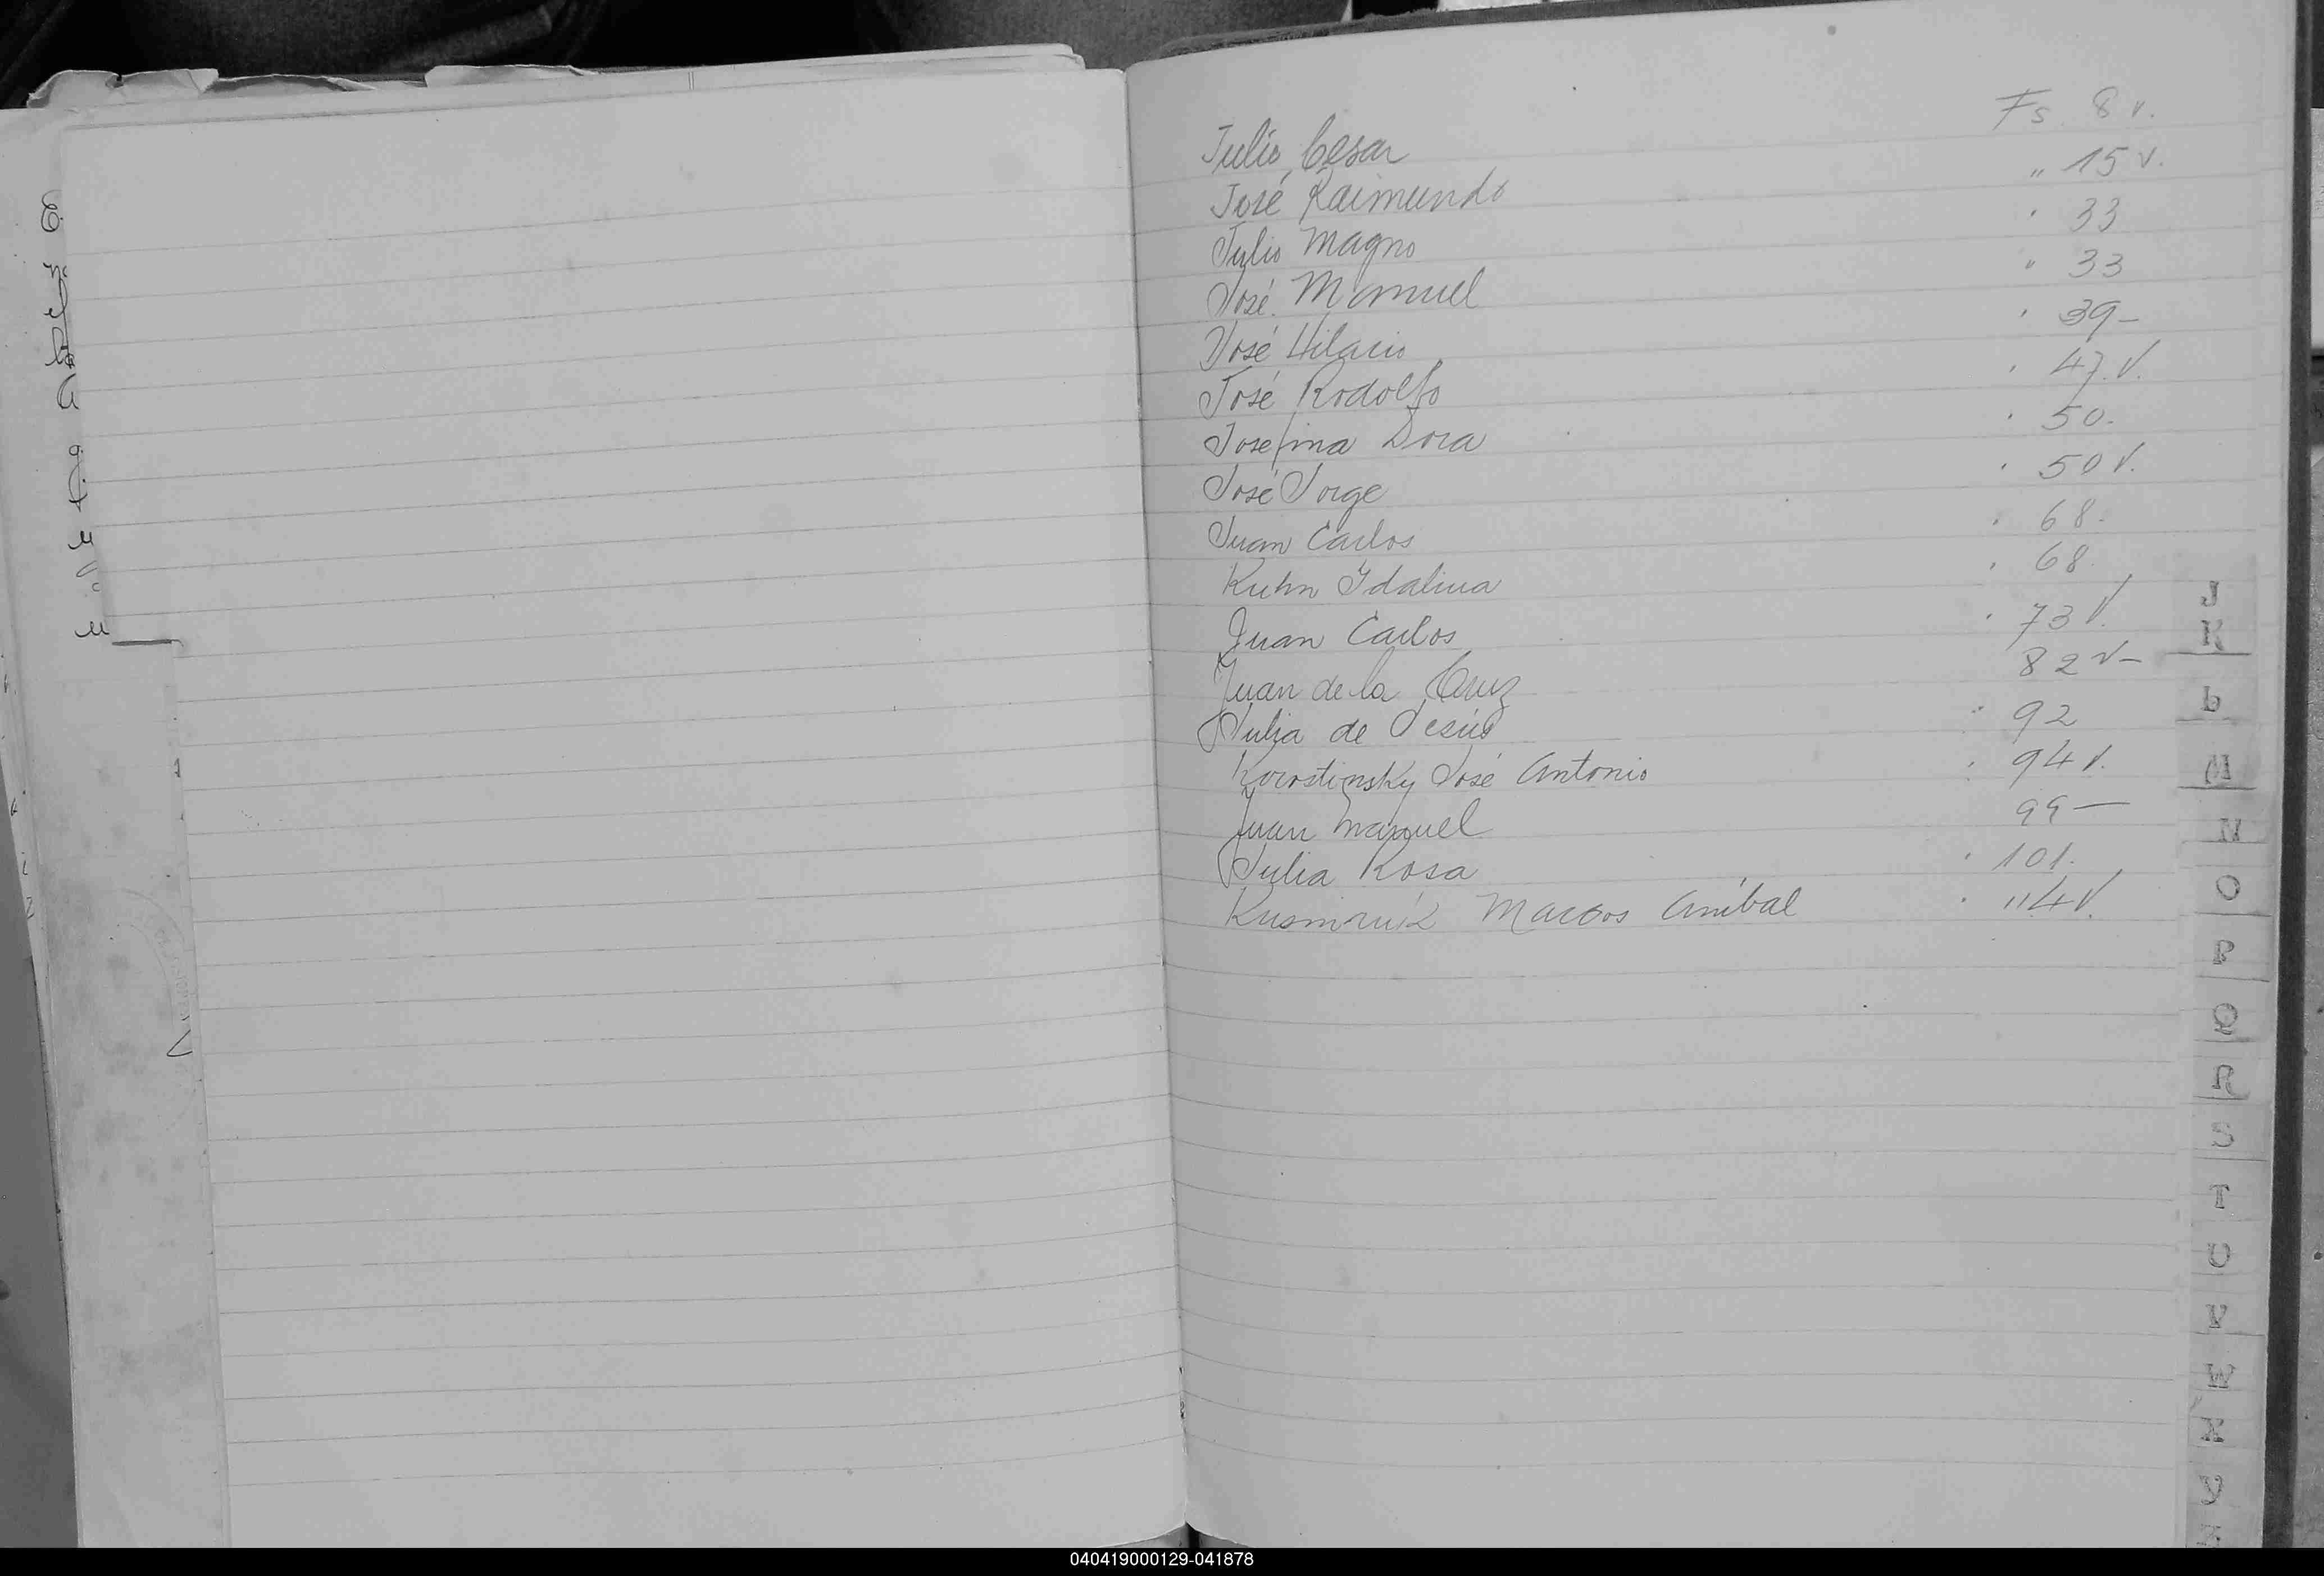 Julio Cesar Fs. 8 v.
José Raimundo " 15 v.
Julio Magno " 33
José Manuel " 33
José Hilario " 39-
José Rodolfo " 47 v.
Josefina Dora " 50.
José Jorge " 50 v.
Juan Carlos " 68.
Kuhn Idalina " 68.
Juan Carlos " 73 v.
Juan de la Cruz 82 v-
Julia de Jesús " 92
Korostinsky José Antonio " 94 v.
Juan Manuel 99-
Julia Rosa " 101.
Marcos Anibal " 114 v.
J
K
L
M
N
O
P
Q
R
S
T
U
V
W
X
Y
040419000129-041878